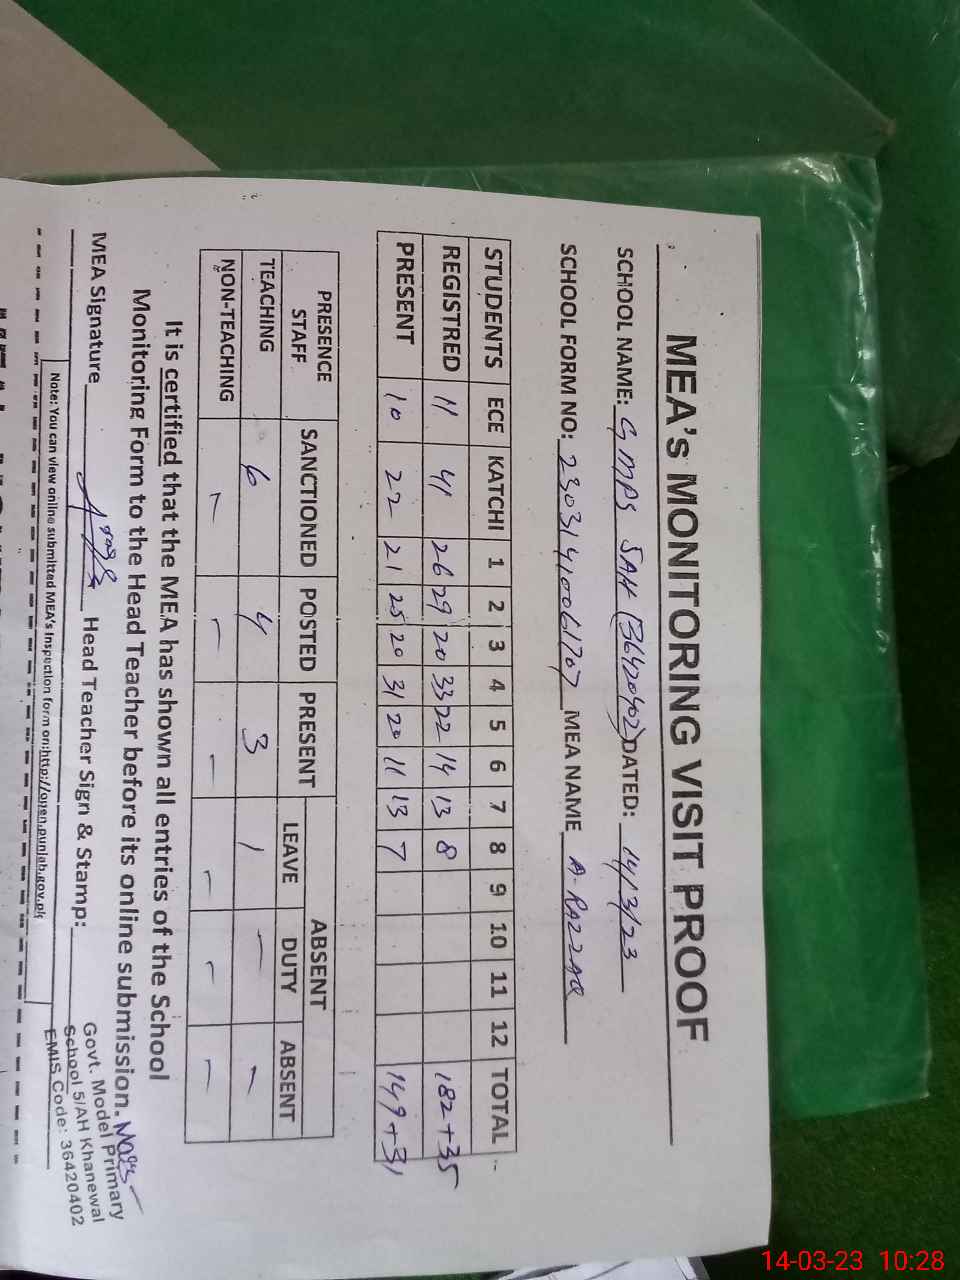 MEA's MONITORING VISIT PROOF
SCHOOL NAME: GMPS 5AH (36420402) DATED: 14/3/23
SCHOOL FORM NO: 23031410061707 MEA NAME A-RAZZAQ
STUDENTS ECE KATCHI 1 2 3 4 5 6 7 8 9 10 11 12 TOTAL
REGISTRED 11 41 26 29 20 33 22 14 13 8 182+35
PRESENT 10 22 21 25 20 31 20 11 13 7 149+31
PRESENCE STAFF SANCTIONED POSTED PRESENT ABSENT
LEAVE DUTY ABSENT
TEACHING 6 4 3 1 – –
NON-TEACHING – – – – – –
It is certified that the MEA has shown all entries of the School
Monitoring Form to the Head Teacher before its online submission.
MEA Signature Head Teacher Sign & Stamp:
Govt. Model Primary
School 5/AH Khanewal
EMIS Code: 36420402
Note: You can view online submitted MEA's Inspection form on:http://open.punjab.gov.pk
14-03-23 10:28